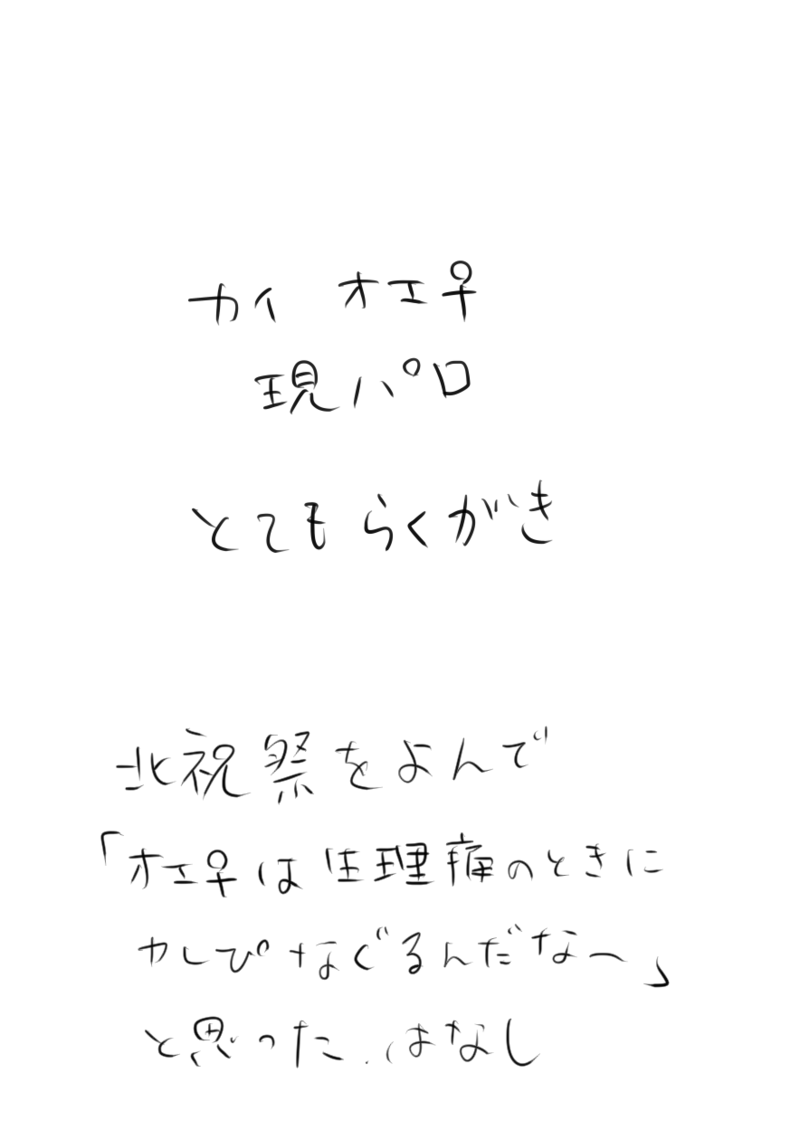 カイ オエ♀
現パロ
とてもらくがき
北祝祭をよんで
「オエ♀は生理痛のときに
かしぴなぐるんだな〜」
と思った はなし